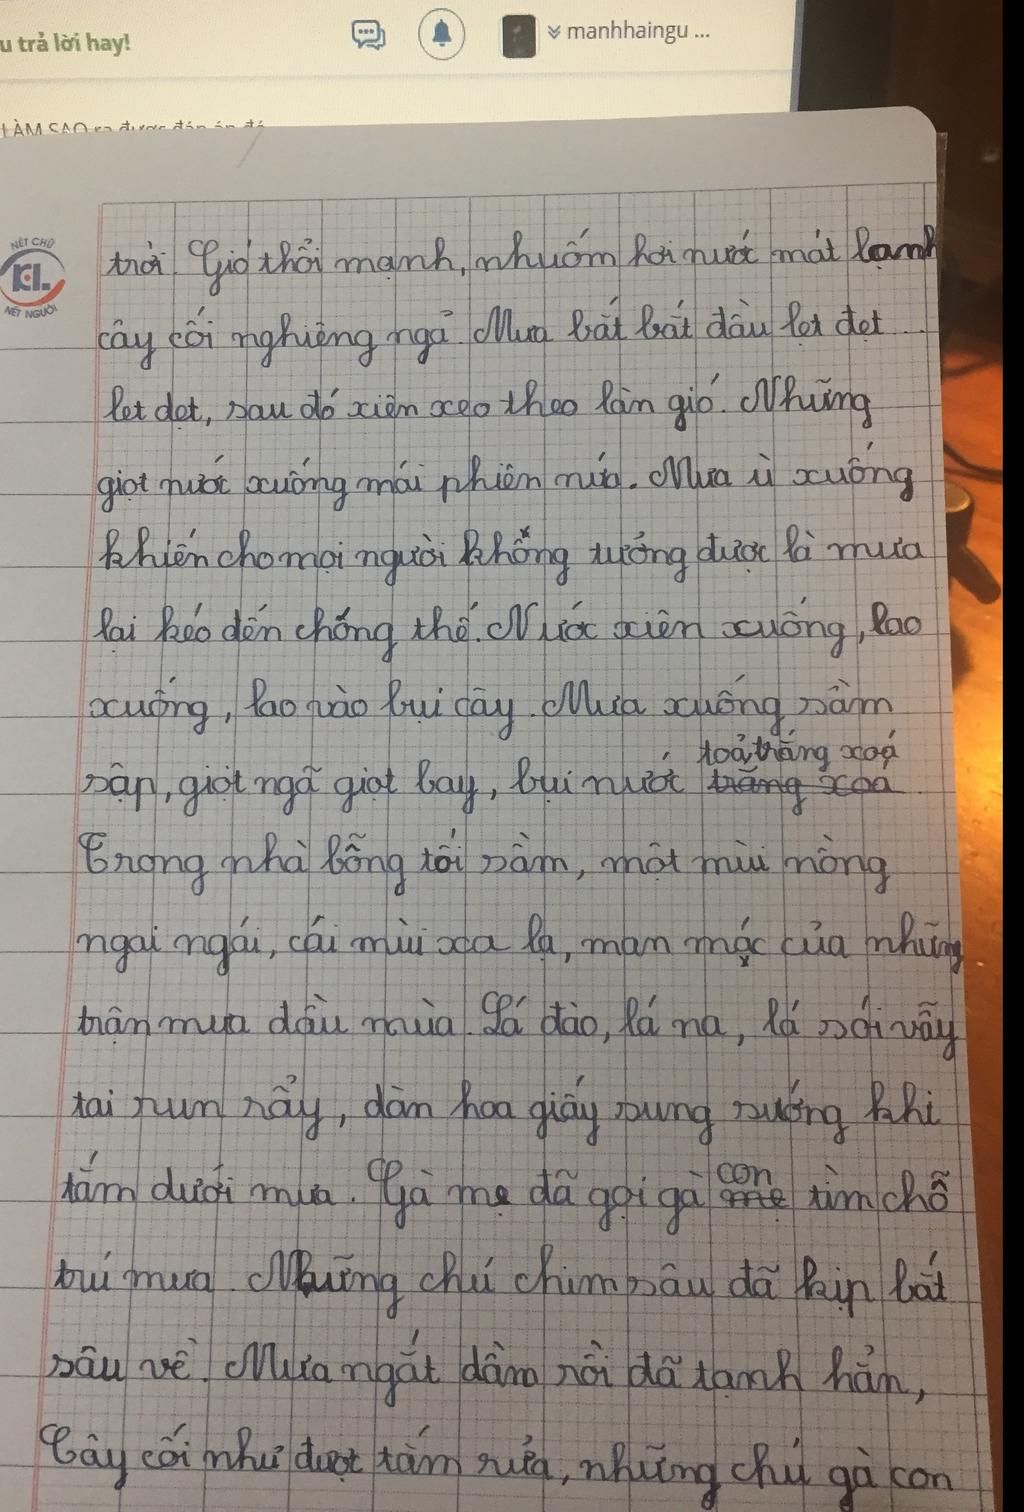 u trả lời hay!
manhhaingu ...
LÀM SAO ra được đáp án đó
NÉT CHỮ
KL
NÉT NGƯỜI
trời Gió thổi mạnh, nhuốm hơi nước mát lạnh
cây cối nghiêng ngả. Mưa bắt bắt đầu lẹt đẹt ...
lẹt đẹt, sau đó xiên xẹo theo làn gió. Những
giọt nước xuống mái phiên nứa. Mưa ù xuống
khiến cho mọi người không tưởng được là mưa
lại kéo đến chóng thế. Nước xiên xuống, lao
xuống, lao vào bụi cây. Mưa xuống sầm
toả trắng xoá
sập, giọt ngã giọt bay, bụi nước trắng xoa
Trong nhà bỗng tối sầm, một mùi nồng
ngai ngái, cái mùi xa lạ, man mác của những
trận mưa đầu mùa. Lá đào, lá na, lá sói vẫy
tai run rẩy, dàn hoa giấy sung sướng khi
con
tắm dưới mưa. Gà mẹ đã gọi gà mẹ tìm chỗ
trú mưa. Những chú chim sâu đã kịp bắt
sâu về. Mưa ngắt dần rồi đã tạnh hẳn,
Cây cối như được tắm rửa, những chú gà con